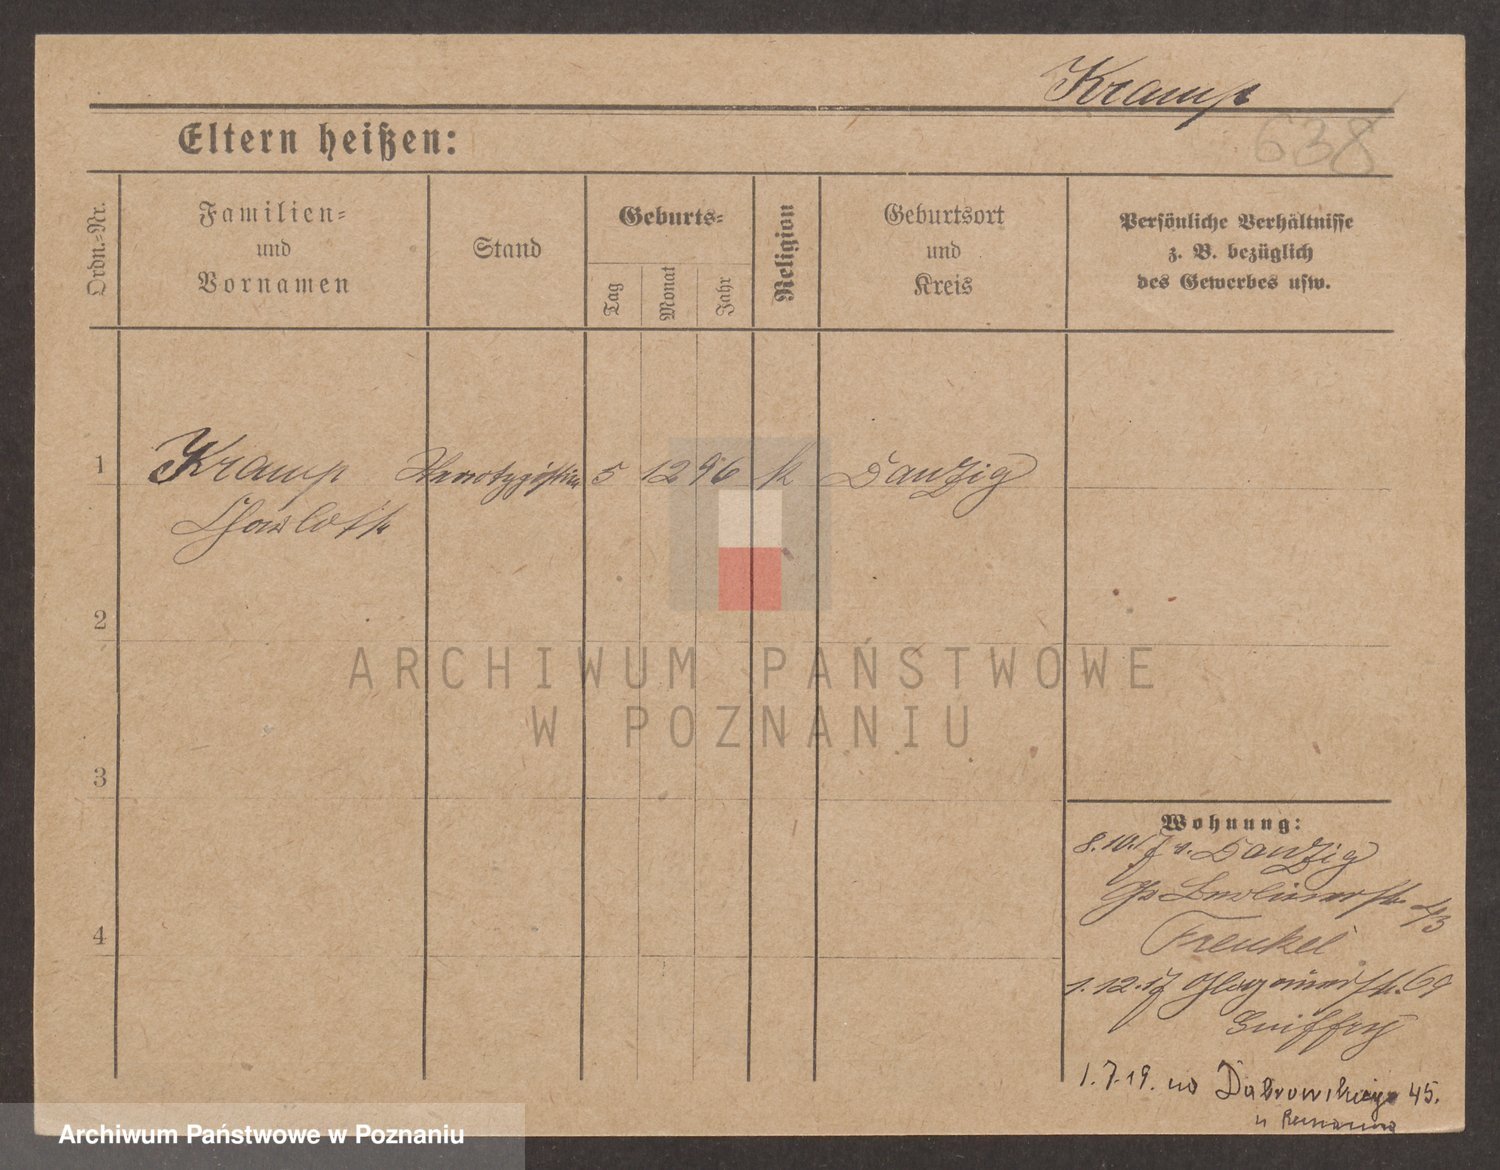 Kramp
638
Eltern heißen:
Ordn.-Nr.
Familien-
und
Vornamen
Stand
Geburts-
Tag
Monat
Jahr
Religion
Geburtsort
und
Kreis
Persönliche Verhältnisse
z. B. bezüglich
des Gewerbes usw.
1 Kramp Stenotypistin 5 12 96 k Danzig
Charlotte
2
3
4
Wohnung:
8.10.17 v. Danzig
Berlinerstr. 4/3
Frenkel
1.12.17 Glogauerstr. 69
1.7.19. na Dabrowskiego 45.
u
ARCHIWUM PAŃSTWOWE
W POZNANIU
Archiwum Państwowe w Poznaniu